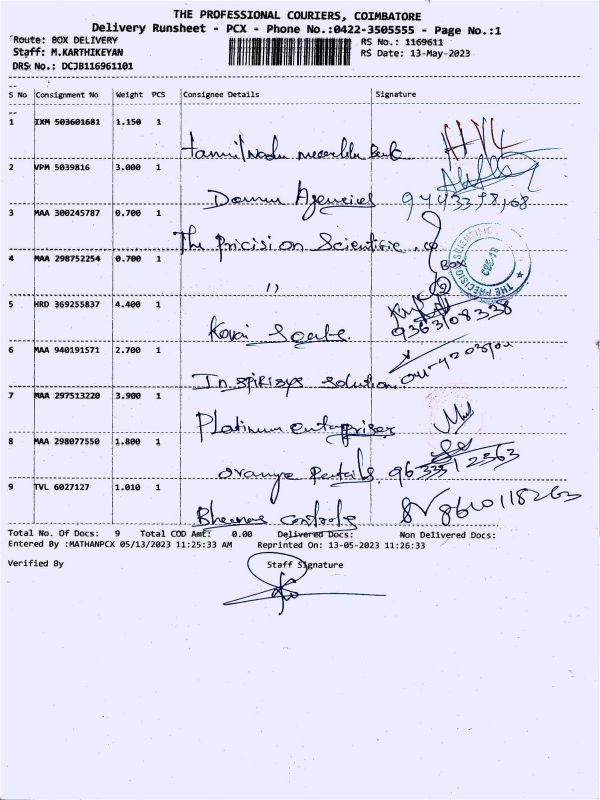 THE PROFESSIONAL COURIERS, COIMBATORE
Delivery Runsheet - PCX - Phone No.:0422-3505555 - Page No.:1
Route: BOX DELIVERY
RS No.: 1169611
Staff: M.KARTHIKEYAN
RS Date: 13-May-2023
DRS No.: DCJB116961101
S No Consignment No Weight PCS Consignee Details Signature
1 IXM 503601681 1.150 1
tamilnadu Bank
2 VPM 5039816 3.000 1
Agencies
3 MAA 300245787 0.700 1
The Pricision Scientific .co
4 MAA 298752254 0.700 1
BOX
"
5 HRD 369255837 4.400 1
Kovai Scale 9363108338
6 MAA 940191571 2.700 1
Inspirisys Solution
7 MAA 297513220 3.900 1
Platinum enterprises
8 MAA 298077550 1.800 1
orange Retails 9633312363
9 TVL 6027127 1.010 1
Controls 8610118263
Total No. Of Docs: 9 Total COD Amt: 0.00 Delivered Docs: Non Delivered Docs:
Entered By :MATHANPCX 05/13/2023 11:25:33 AM Reprinted On: 13-05-2023 11:26:33
Verified By Staff Signature